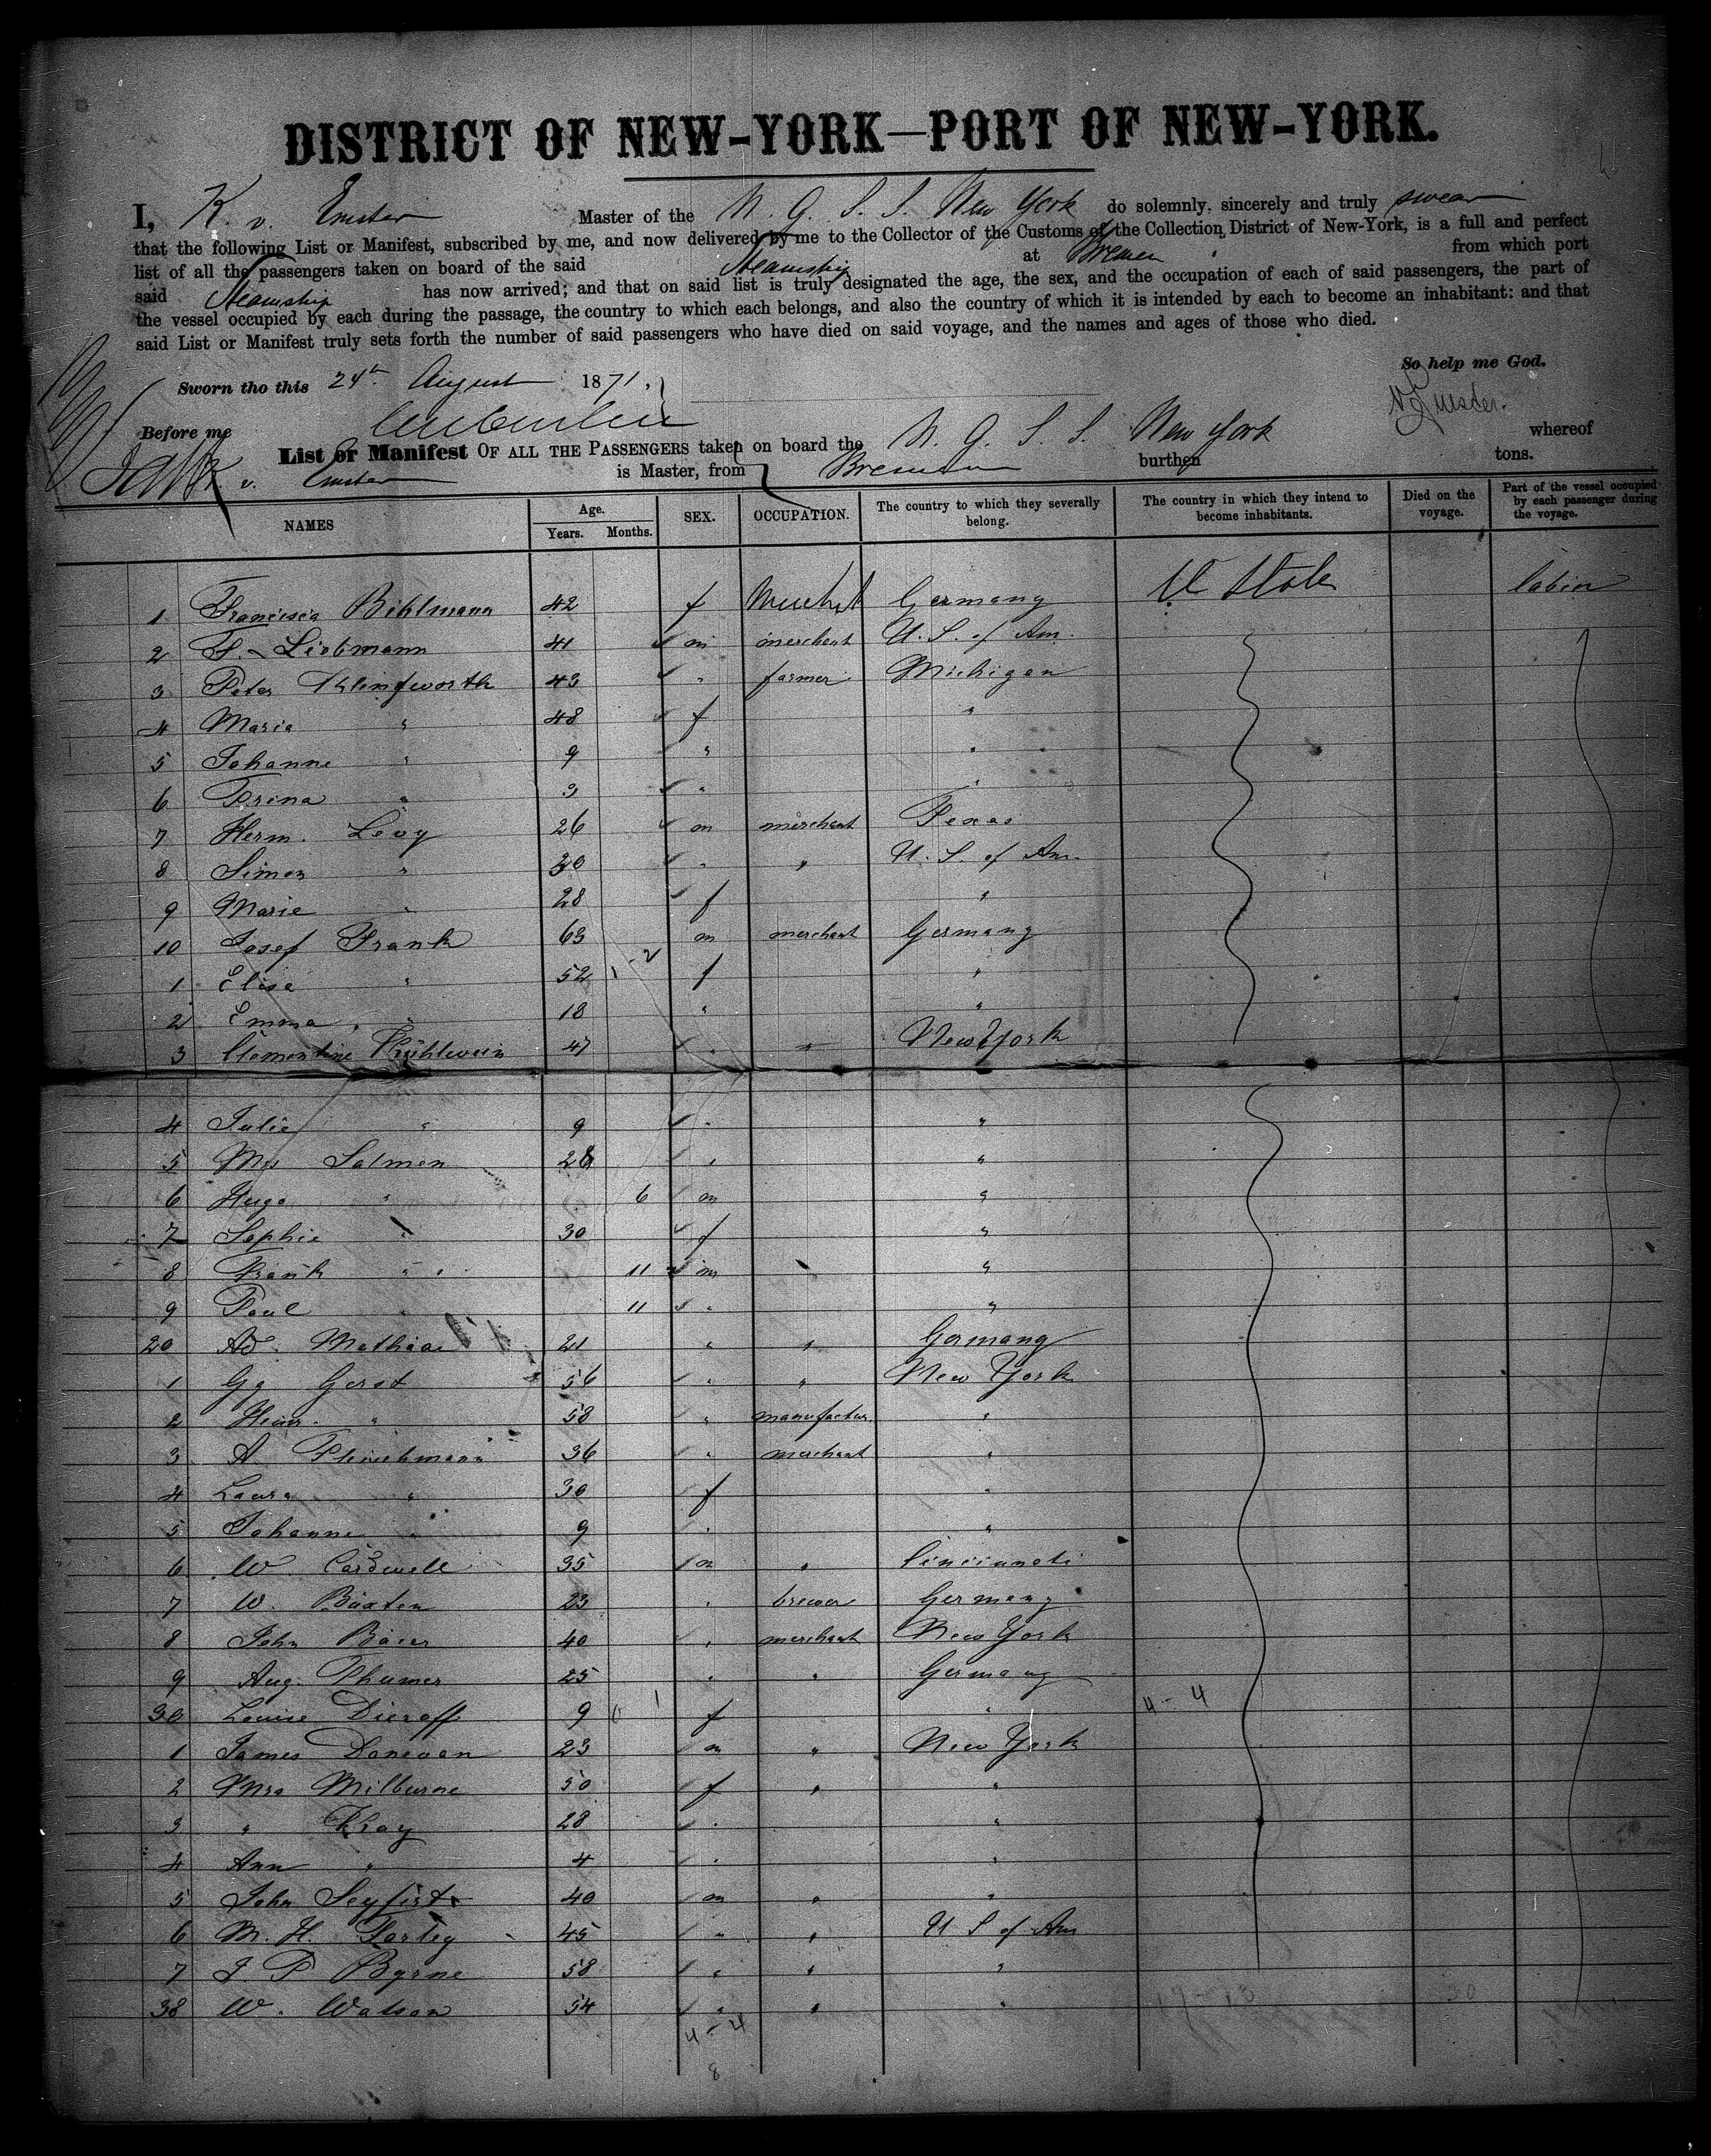 DISTRICT OF NEW-YORK—PORT OF NEW-YORK.
I, K. v. Emster Master of the N. G. S. S. New York do solemnly, sincerely and truly swear
that the following List or Manifest, subscribed by me, and now delivered by me to the Collector of the Customs of the Collection District of New-York, is a full and perfect
list of all the passengers taken on board of the said Steamship at Bremen from which port
said Steamship has now arrived; and that on said list is truly designated the age, the sex, and the occupation of each of said passengers, the part of
the vessel occupied by each during the passage, the country to which each belongs, and also the country of which it is intended by each to become an inhabitant: and that
said List or Manifest truly sets forth the number of said passengers who have died on said voyage, and the names and ages of those who died.
So help me God.
Sworn tho this 24th August 1871,
Before me
List or Manifest OF ALL THE PASSENGERS taken on board the N. G. S. S. New York whereof
K v. Emster is Master, from Bremen burthen tons.
NAMES Age. Years. Months. SEX. OCCUPATION. The country to which they severally belong. The country in which they intend to become inhabitants. Died on the voyage. Part of the vessel occupied by each passenger during the voyage.
1 Francisca Bihlmann 42 f Germany U States Cabin
2 F. Liebmann 41 m merchant U. S. of Am.
3 Peter Klintworth 43 " farmer Michigan
4 Maria " 48 f "
5 Johanne " 9 " "
6 Trina " 3 " "
7 Herm. Levy 26 m merchant Texas
8 Simon " 30 " " U. S. of Am.
9 Marie " 28 f "
10 Josef Frank 63 m merchant Germany
1 Elise " 52 f "
2 Emma " 18 " "
3 Clementine 47 " New York
4 Julie " 9 " "
5 Mrs Salmon 28 " "
6 Hugo " 6 m "
7 Sophie " 30 f "
8 Frank " 11 m "
9 Paul " 11 " "
20 Ad. Mathiae 21 " " Germany
1 Gg Gerst 56 " " New York
2 Heinr. " 58 " manufactur. "
3 A 36 " merchant "
4 Laura " 30 f "
5 Johanne " 9 " "
6 W. Cardwell 35 m " Cincinnati
7 W. Buxten 23 " brewer Germany
8 John Baier 40 " merchant New York
9 Aug. Thumer 25 " " Germany
30 Louise Dieroff 9 f " 4-4
1 James Donevan 23 m " New York
2 Mrs Milburne 50 f " "
3 " Kray 28 " "
4 Ann " 4 " "
5 John Seyfert 40 m " "
6 M. H. 45 " " U S of Am
7 J. P Byrne 58 " " "
38 W. Watson 54 " " "
4-4
8